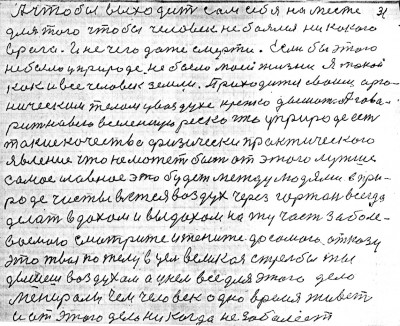 А чтобы выходит сам себя на месте 31
для того чтобы человек не боялся никакого
врага. И нечего даже смерти. Если бы этого
небыло уприроде. не было моей жизни Я такой
как и все человек земли. Приходится своим
ническим телом увоздухе крепко дышать А гова
рит навсю вселенную резко что уприроде есть
такие качества физически практического
явление что неможет быть от этого лутше
самое главное это будет между людями упри
роде чистый воздух через гортань всегда
делать вдохом и выдохом на ту часть заболе
ваемого смотрите и тените до самого отказу
это твое по телу
дышиш воздухом а унем все для этого дело
чем человек одно время живет
и от этого дела никогда не заболеет